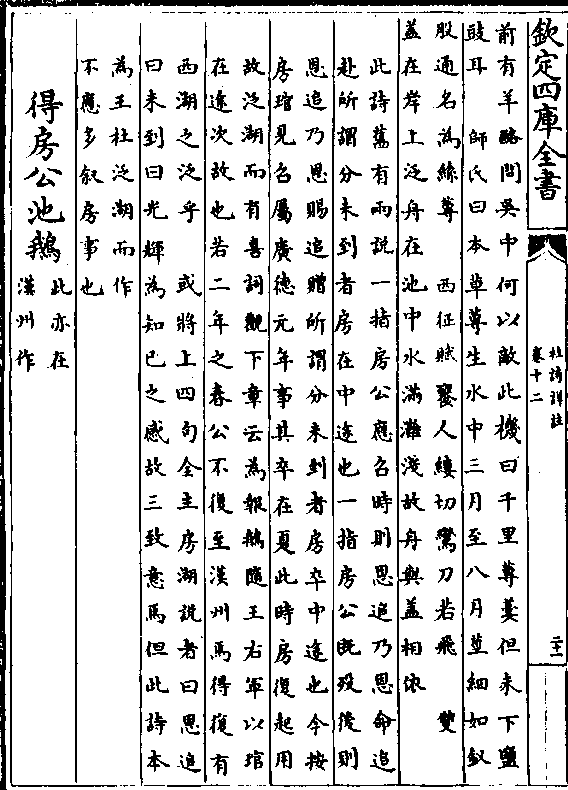 欽定四庫全書
杜詩詳註
卷十二
前有羊酪問吳中何以敵此機曰千里蓴羹但未下鹽
豉耳　師氏曰本草蓴生水中三月至八月莖細如釵
股通名為絲蓴　西征賦饔人縷切鸞刀若飛　雙
蓋在岸上泛舟在池中水滿灘淺故舟與蓋相依
此詩舊有兩說一指房公應召時則恩追乃恩命追
赴所謂分未到者房在中途也一指房公既歿後則
恩追乃恩賜追贈所謂分未到者房卒中途也今按
房琯見召屬廣德元年事其卒在夏此時房復起用
故泛湖而有喜詞觀下章云為報鵝隨王右軍以琯
在途次故也若二年之春公不復至漢州焉得復有
西湖之泛乎　或將上四句全主房湖說者曰恩追
曰未到曰光輝為知己之感故三致意焉但此詩本
為王杜泛湖而作
不應多叙房事也
得房公池鵝
此亦在
漢州作